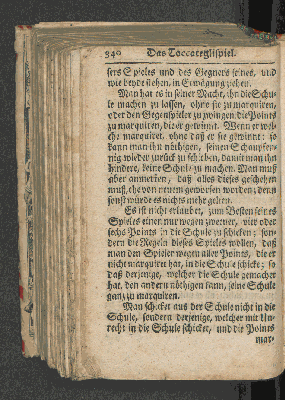 340 Das Toccateglispiel.
sers Spieles und des Gegners seines, und
wie beyde stehen, in Erwägung ziehen.
Man hat es in seiner Macht, ihn die Schu-
le machen zu lassen, ohne sie zu marquiren,
oder den Gegenspieler zu zwingen, die Points
zu marquiren, die er gewinnt. Wenn er wel-
che marquiret, ohne daß er sie gewinnt: so
kann man ihn nöthigen, seinen
wieder zurück zu schieben, damit man ihn
hindere, keine Schule zu machen. Man muß
aber anmerken, daß alles dieses geschehen
muß, ehe von neuem geworfen worden; denn
sonst würde es nichts mehr gelten.
Es ist nicht erlaubet, zum Besten seines
Spieles einen nur wegen zweyer, vier oder
sechs Points in die Schule zu schicken; son-
dern die Regeln dieses Spieles wollen, daß
man den Spieler wegen aller Points, die er
nicht marquiret hat, in die Schule schicke; so
daß derjenige, welcher die Schule gemachet
hat, den andern nöthigen kann, seine Schule
ganz zu marquiren.
Man schicket aus der Schule nicht in die
Schule, sondern derjenige, welcher mit Un-
recht in die Schule schicket, und die Points
mar-